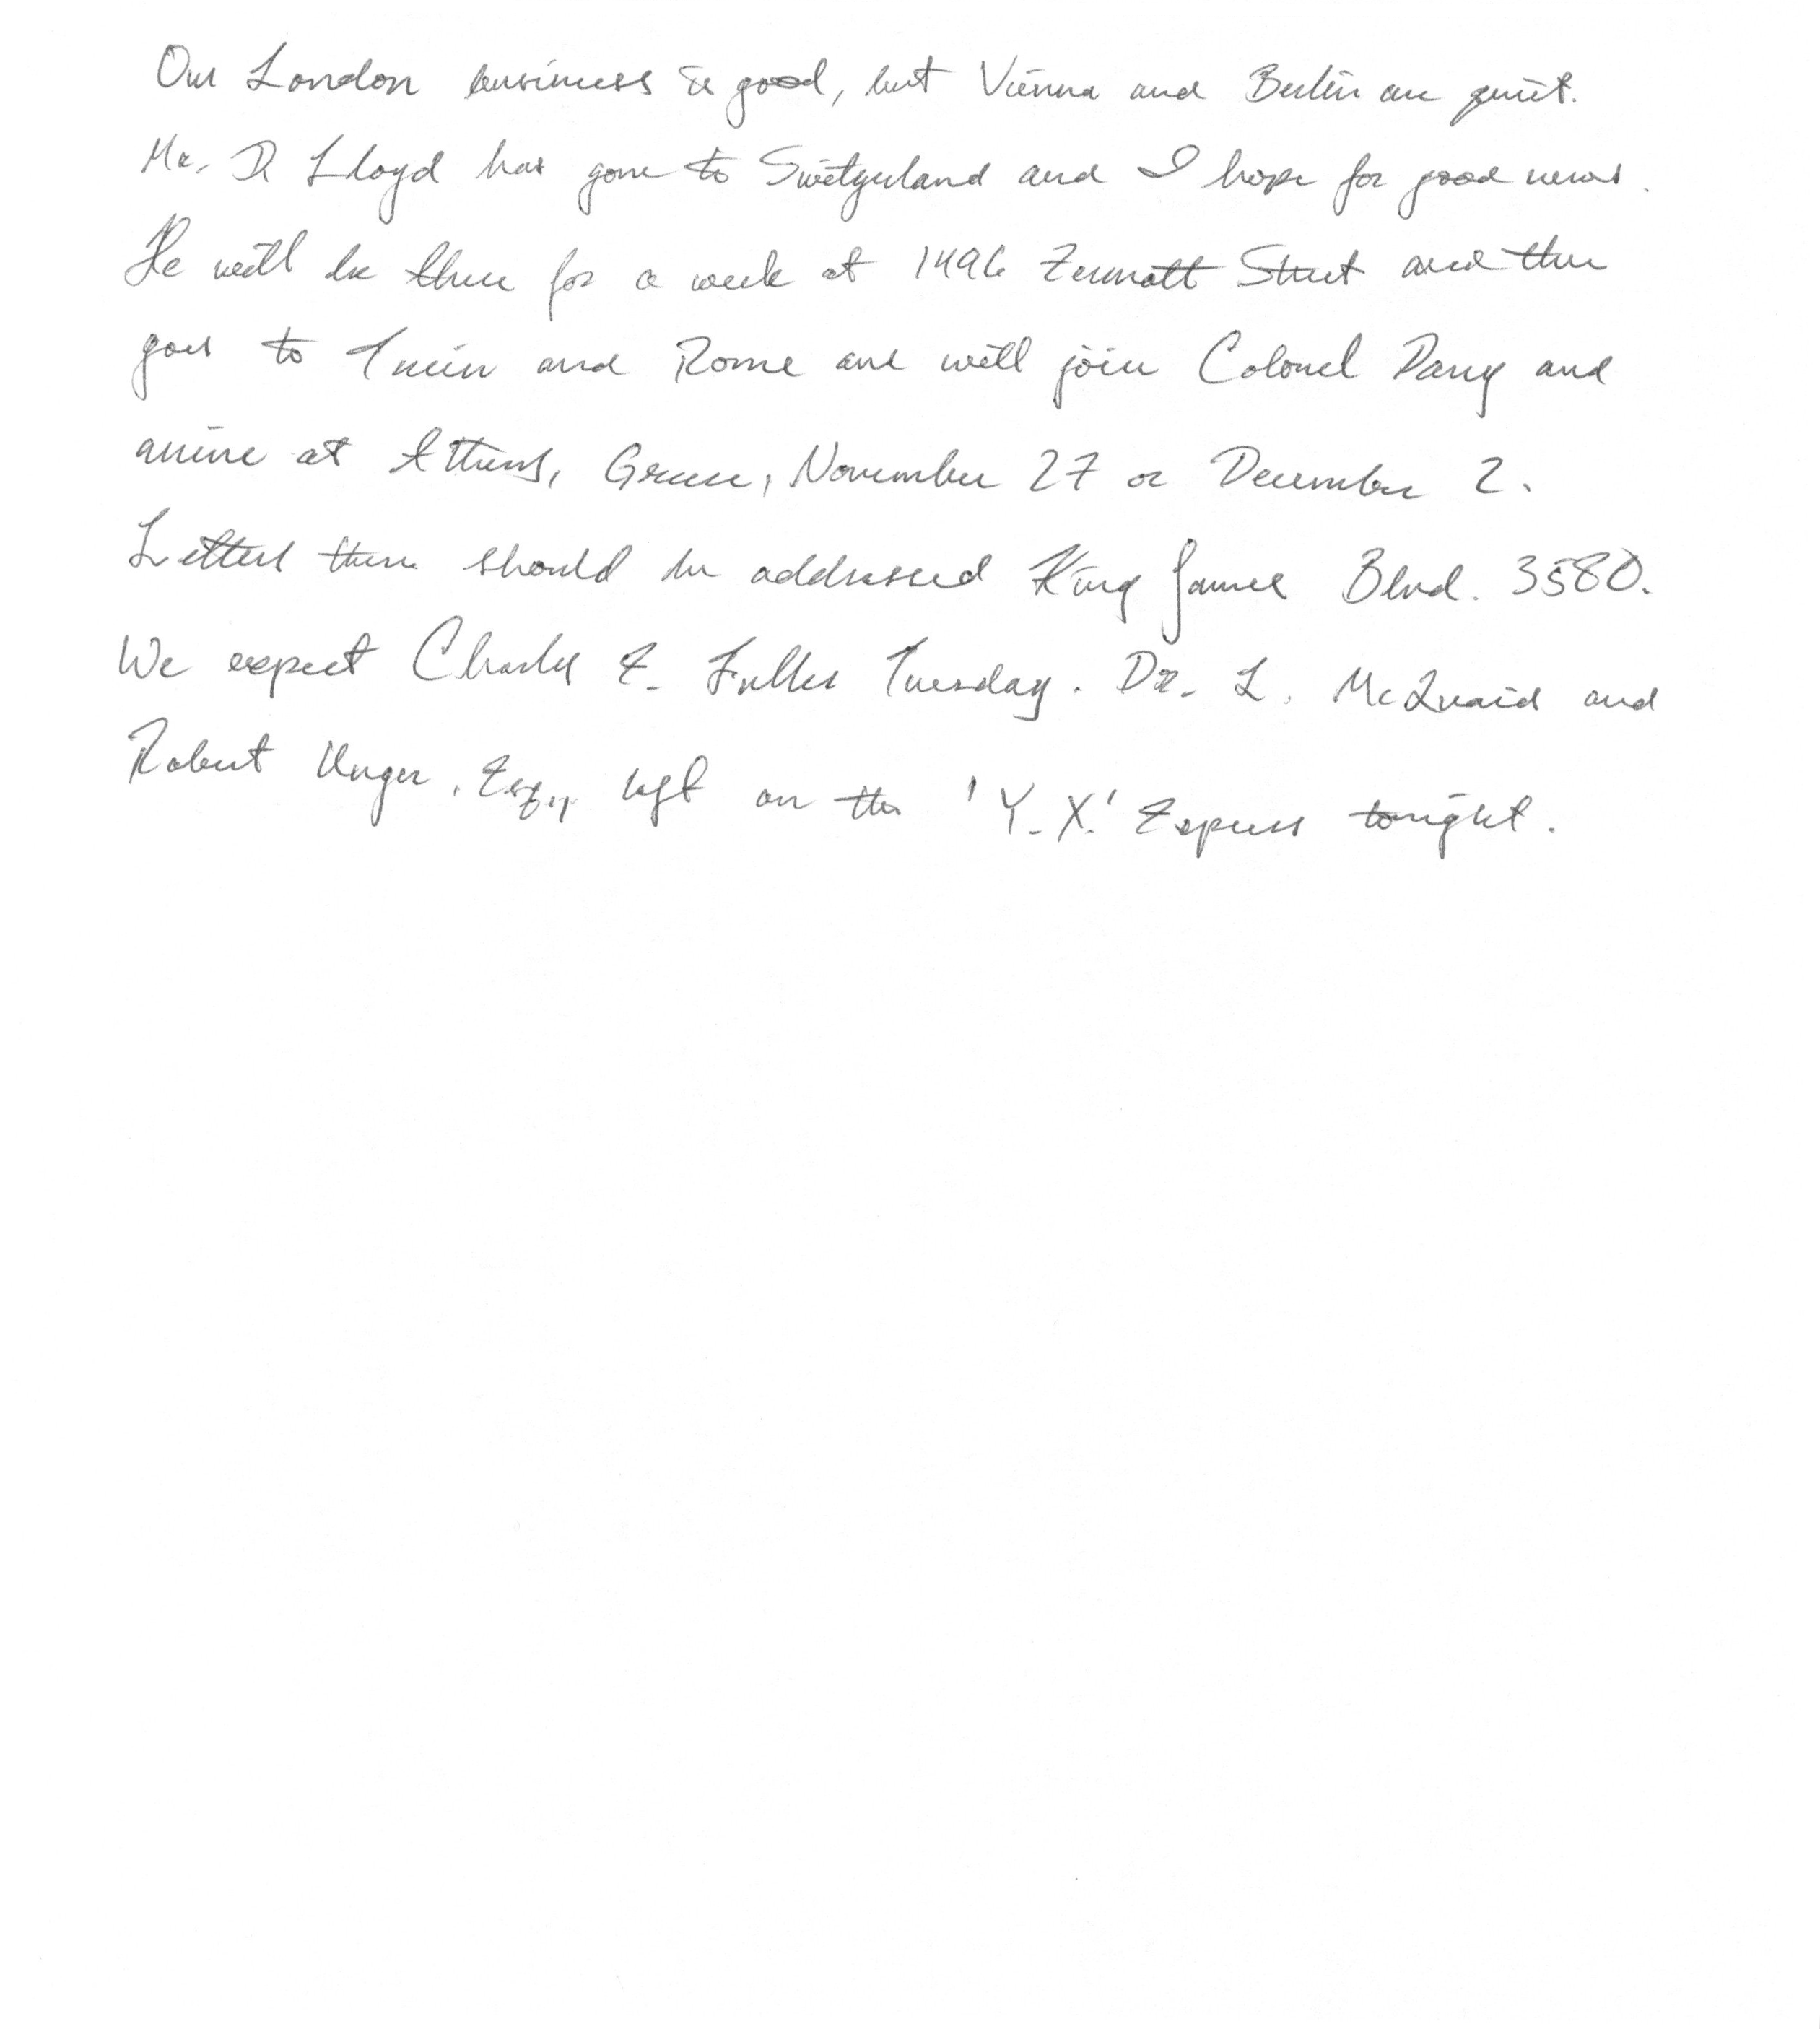 Our London business is good, but Vienna and Berlin are quiet.
Mr. D Lloyd has gone to Switzerland and I hope for good news.
He will be there for a week at 1496 Zermott Street and then
goes to Turin and Rome and will join Colonel Parry and
arrive at Athens, Greece, November 27 or December 2.
Letters there should be addressed King James Blvd. 3580.
We expect Charles E. Fuller Tuesday. Dr. L. McQuaid and
Robert Unger, Esq., left on the 'Y.X.' Express tonight.